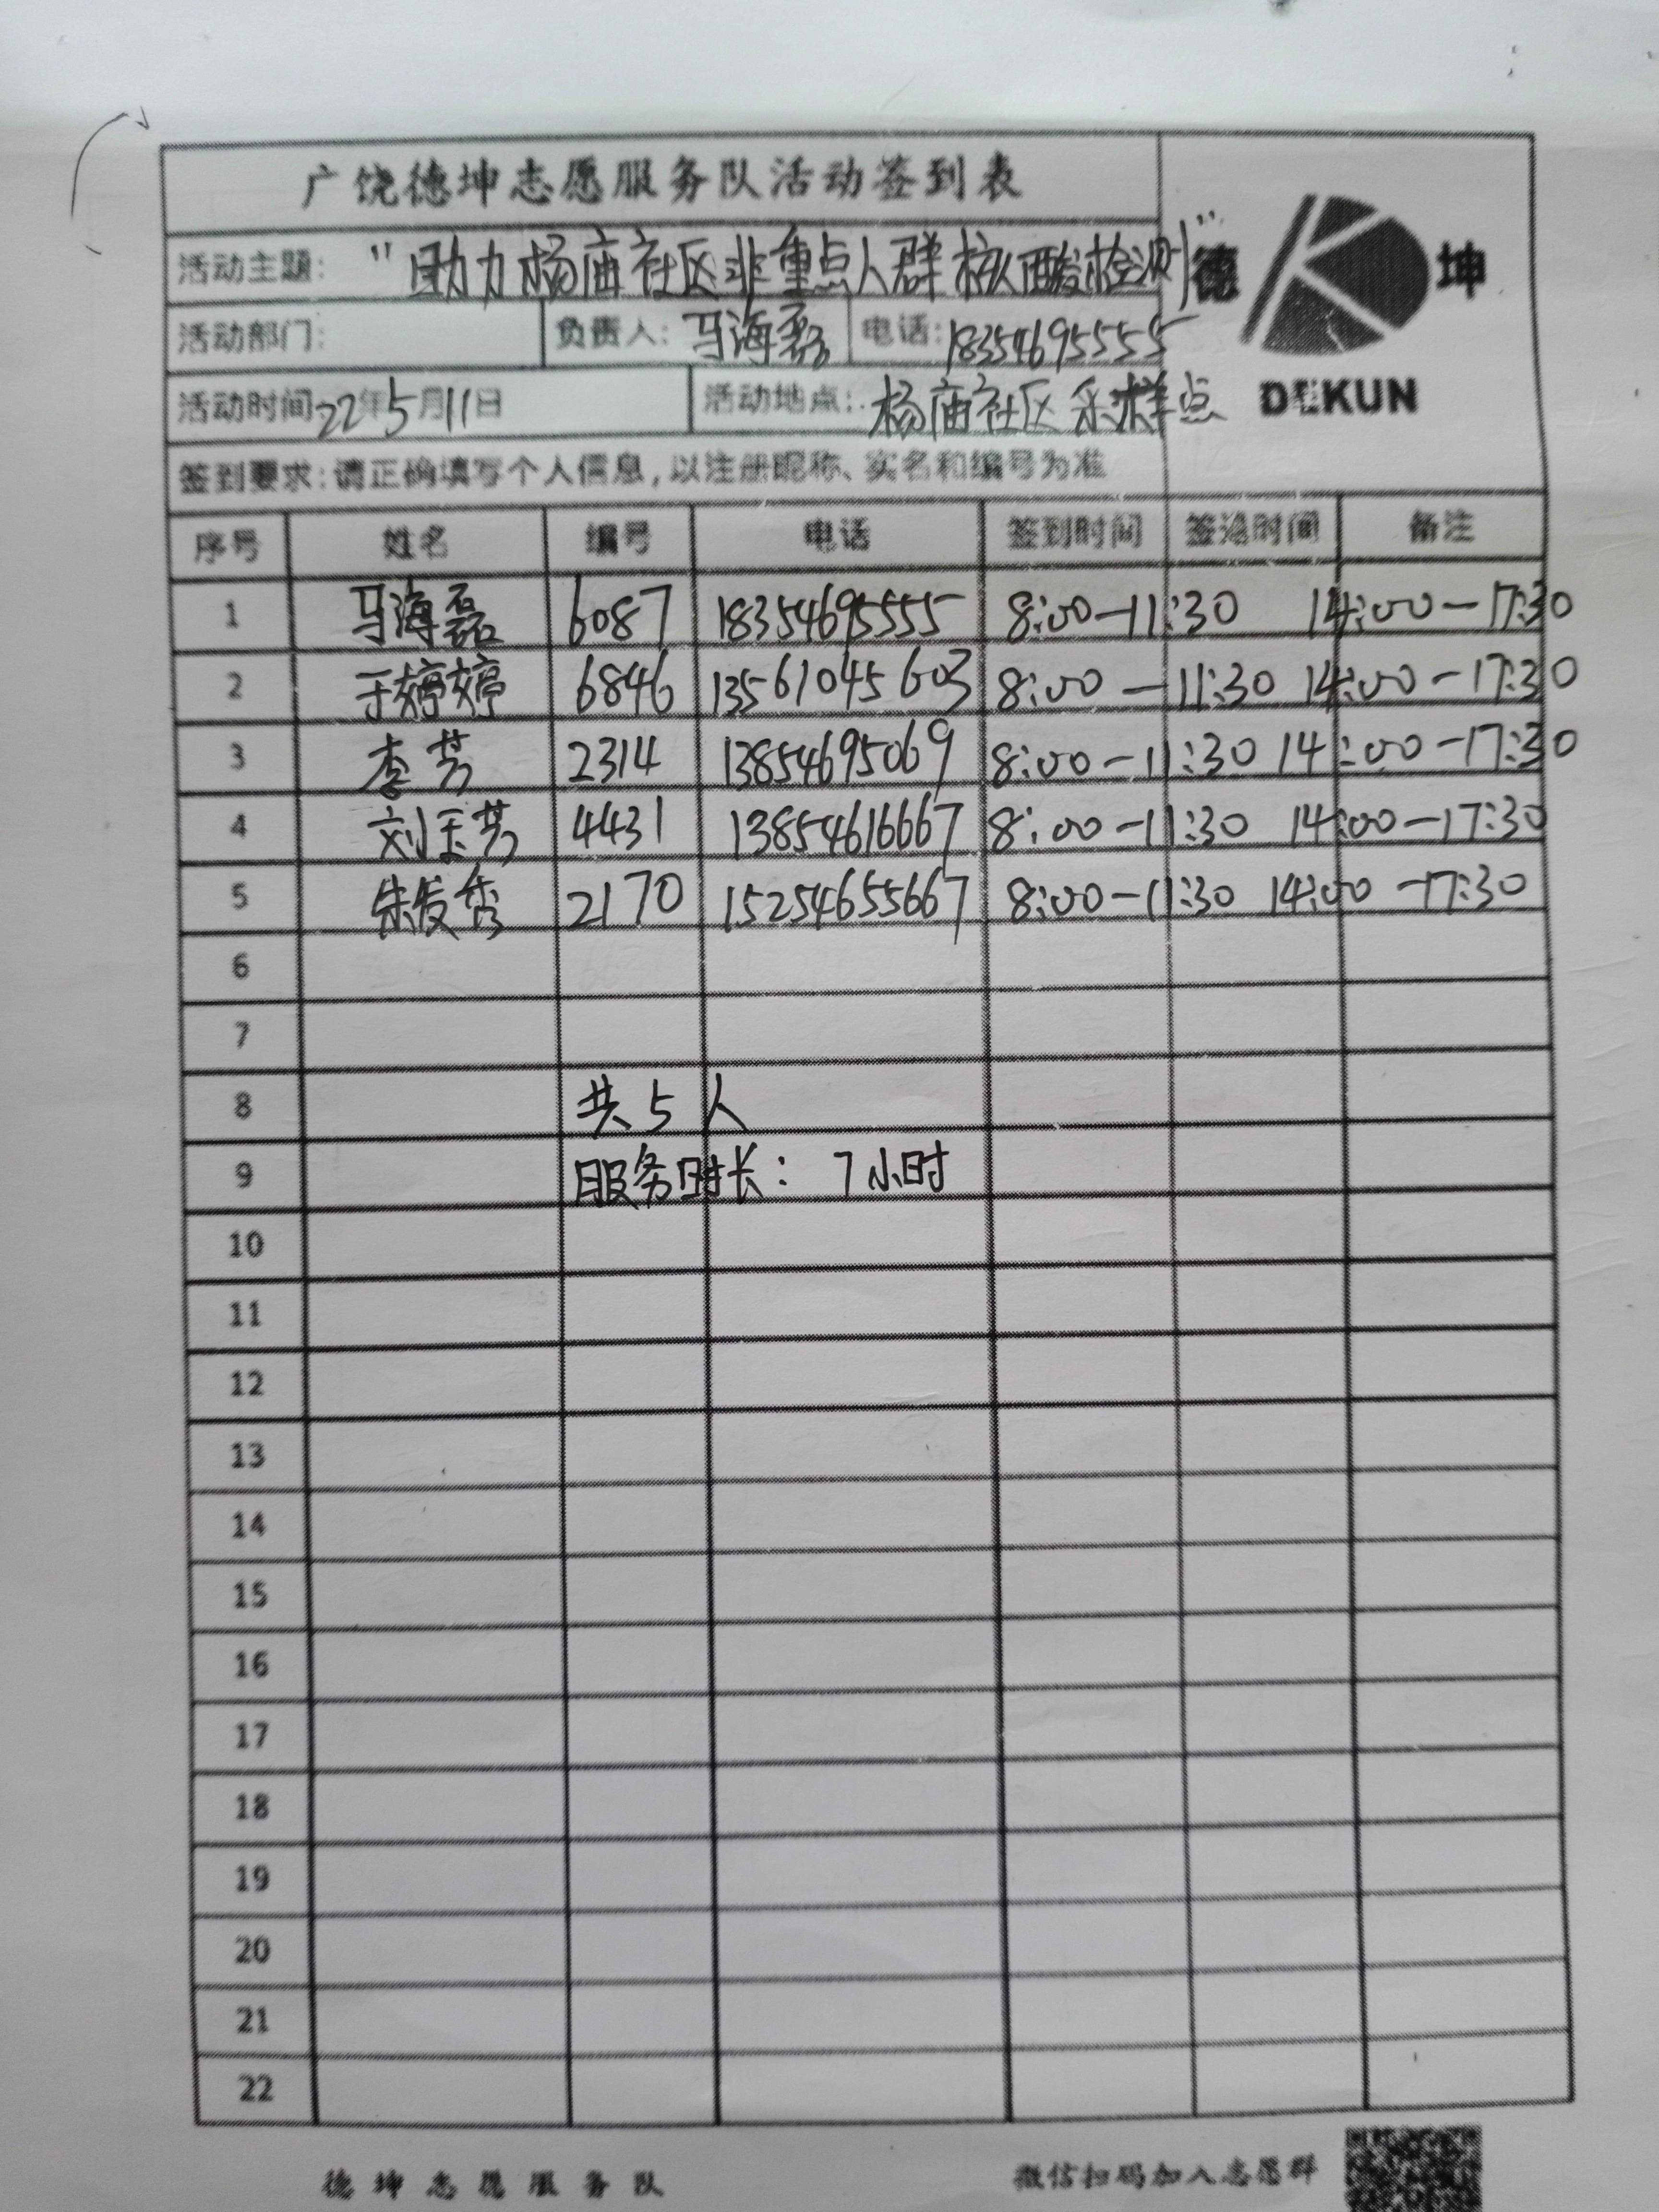 广饶德坤志愿服务队活动签到表
活动主题: "助力杨庙社区非重点人群核酸检测"
德 坤
DEKUN
活动部门: 负责人: 马海磊 电话: 18354695555
活动时间 22年5月11日 活动地点: 杨庙社区采样点
签到要求: 请正确填写个人信息, 以注册昵称、实名和编号为准
序号 姓名 编号 电话 签到时间 签退时间 备注
1 马海磊 6087 18354695555 8:00-11:30 14:00-17:30
2 于婷婷 6846 13561045603 8:00-11:30 14:00-17:30
3 李芳 2314 13854695069 8:00-11:30 14:00-17:30
4 刘玉芳 4431 13854616667 8:00-11:30 14:00-17:30
5 朱发秀 2170 15254655667 8:00-11:30 14:00-17:30
6
7
8 共5人
9 服务时长: 7小时
10
11
12
13
14
15
16
17
18
19
20
21
22
德坤志愿服务队 微信扫码加入志愿群